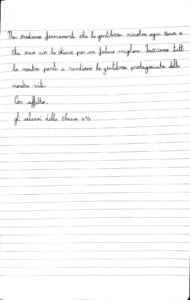 Noi crediamo fermamente che la gentilezza risolva ogni cosa e
che essa sia la chiave per un futuro migliore. Facciamo tutti
la nostra parte e rendiamo la gentilezza protagonista delle
nostre vite.
Con affetto,
gli alunni della classe